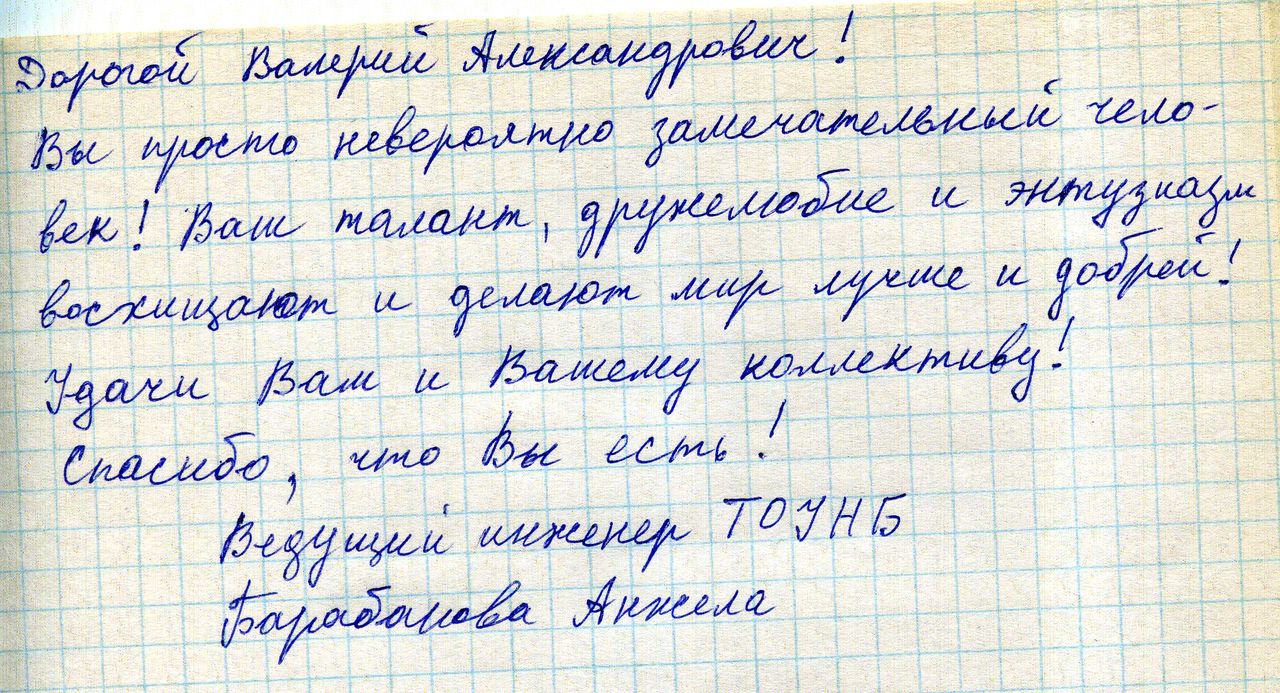 Дорогой Валерий Александрович!
Вы просто невероятно замечательный чело-
век! Ваш талант, дружелюбие и энтузиазм
восхищают и делают мир лучше и добрей!
Удачи Вам и Вашему коллективу!
Спасибо, что Вы есть!
Ведущий инженер ТОУНБ
Барабанова Анжела